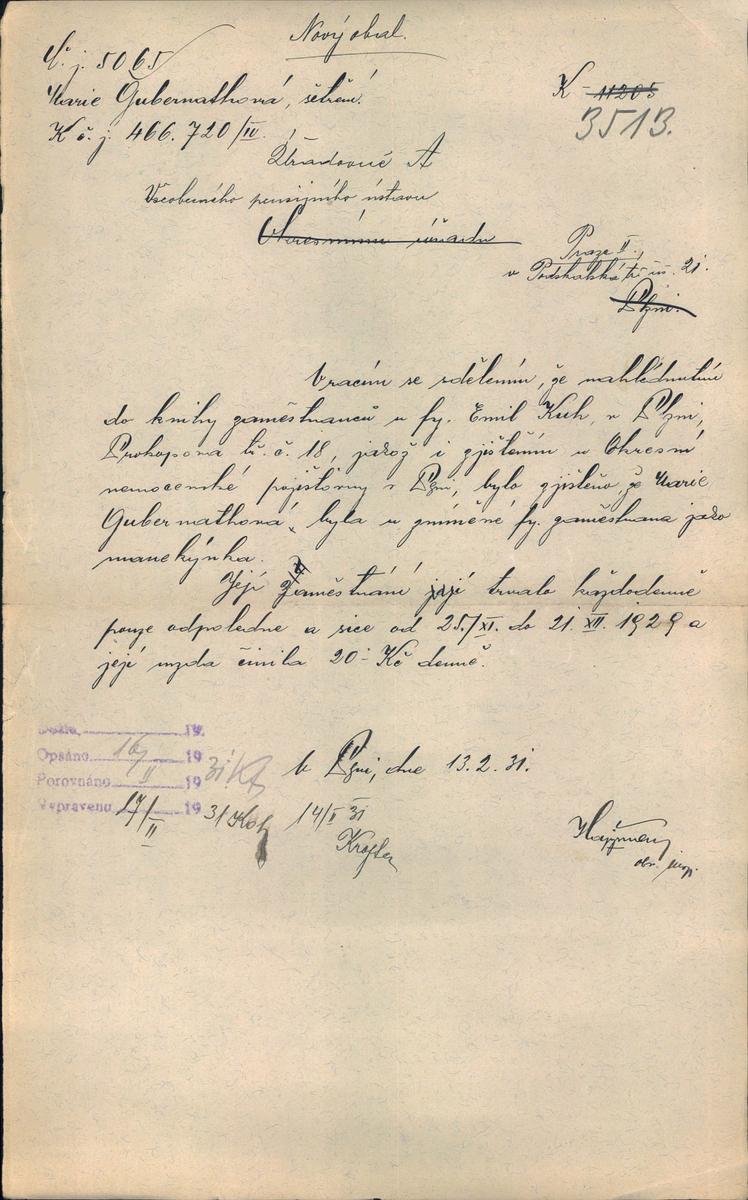 Nový obal.
Č. j. 5065
Marie Gubernathová, šetření.
K č. j. 466.720/IV.
K 11205
3513.
Úřadovně A
Všeobecného pensijního ústavu
Okresnímu úřadu
Praze II.,
v Podskalská tř. čís. 21.
Plzni.
Vracím se sdělením, že nahlédnutím
do knihy zaměstnanců u fy. Emil Kuh, v Plzni,
Prokopova tř. č. 18, jakož i zjištěním u Okresní
nemocenské pojišťovny v Plzni, bylo zjištěno, že Marie
Gubernathová, byla u zmíněné fy. zaměstnána jako
manekýnka.
Její zaměstnání její trvalo každodenně
pouze odpoledne a sice od 25./XI. do 21. XII. 1929 a
její mzda činila 20.- Kč denně.
Došlo 19
Opsáno 16/ 1931
Porovnáno II 19
Vypraveno 17/II 1931
V Plzni, dne 13.2.31.
14/II 31